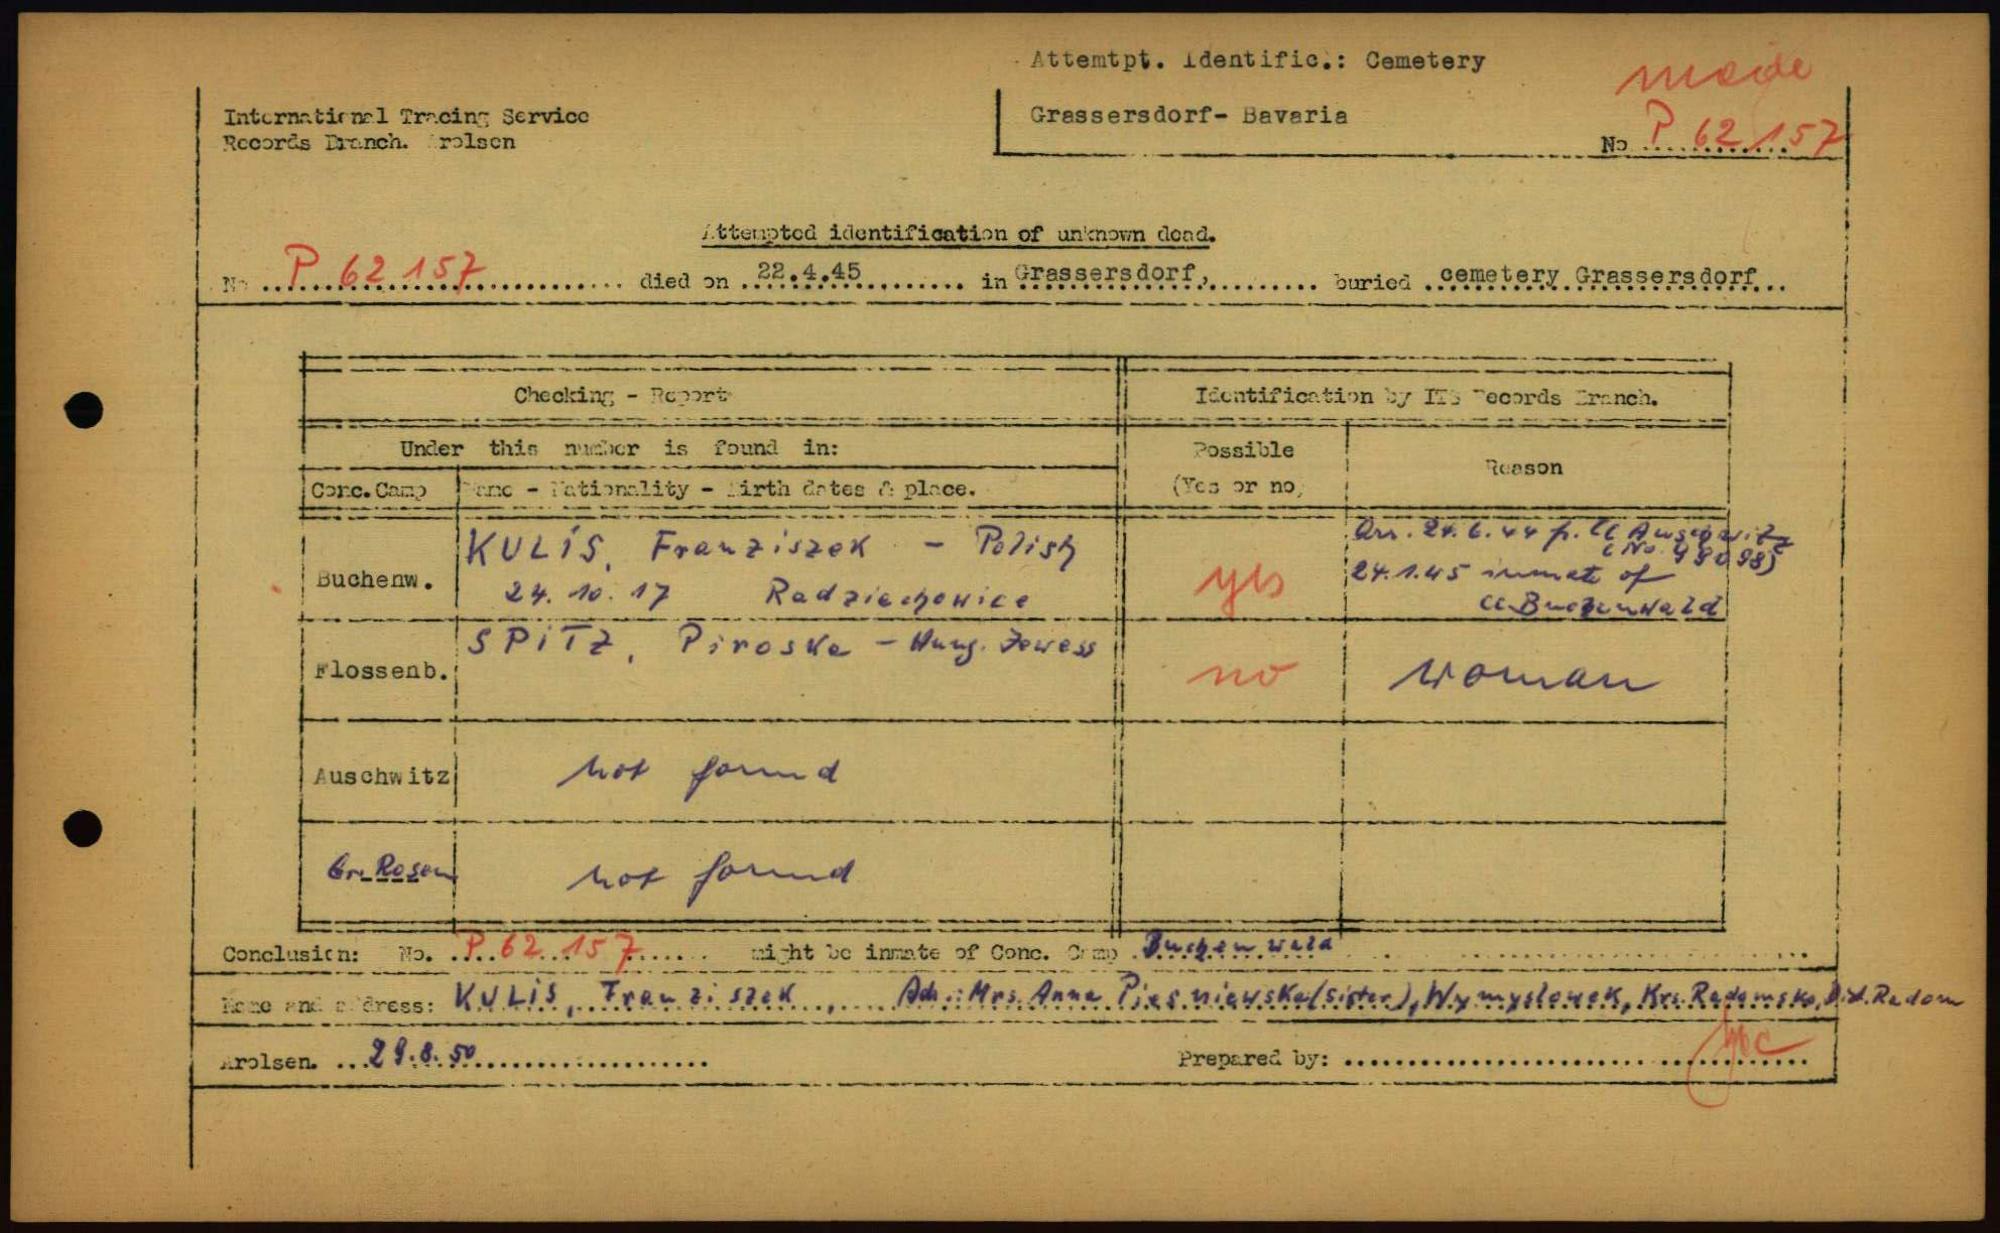 Attemtpt. Identific.: Cemetery
Grassersdorf- Bavaria
made
No P 62 157
International Tracing Service
Records Branch. Arolsen
Attempted identification of unknown dead.
No P 62 157 died on 22.4.45 in Grassersdorf, buried cemetery Grassersdorf
Checking - Report
Identification by ITS Records Branch.
Under this number is found in:
Possible
(Yes or no)
Reason
Conc.Camp
Name - Nationality - Birth dates & place.
Buchenw.
KULIS, Franziszek - Polish
24.10.17 Radziechowice
yes
Arr. 24.6.44 fr. CC Auschwitz
24.1.45 inmate of
CC Buchenwald
Flossenb.
SPITZ, Piroska - Hung. Jewess
no
woman
Auschwitz
not found
Gr. Rosen
not found
Conclusion: No. P 62 157 might be inmate of Conc. Camp Buchenwald
Name and address: KULIS, Franziszek, Adr.: Mrs. Anna Piesniewska (sister), Wymyslowek, Krs. Radomsko, Dist. Radom
Arolsen. 29.8.50
Prepared by: